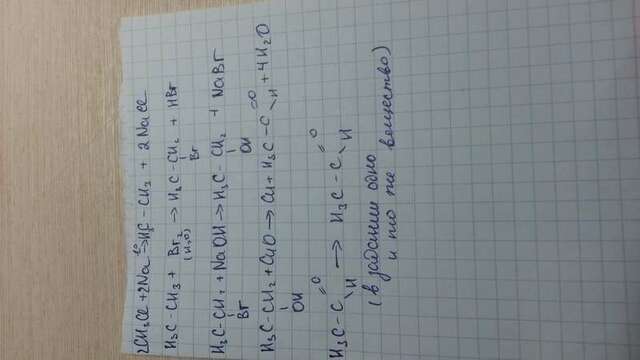 2CH₃Cl + 2Na →t° H₃C - CH₃ + 2NaCl
H₃C - CH₃ + Br₂ (H₂O) → H₃C - CH₂ Br + HBr
H₃C - CH₂ Br + NaOH → H₃C - CH₂ OH + NaBr
H₃C - CH₂ OH + CuO → Cu + H₃C - C =O H + 4H₂O
H₃C - C =O H → H₃C - C =O H
(в задании одно
и то же вещество)